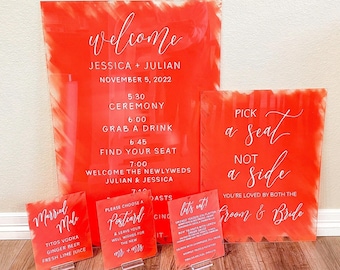 welcome
JESSICA + JULIAN
NOVEMBER 5, 2022
5:30
CEREMONY
6:00
GRAB A DRINK
6:45
FIND YOUR SEAT
7:00
WELCOME THE NEWLYWEDS
JULIAN & JESSICA
TOASTS
PICK
a seat
NOT
a side
YOU'RE LOVED BY BOTH THE
Groom & Bride
Married
Mule
TITOS VODKA
GINGER BEER
FRESH LIME JUICE
PLEASE CHOOSE A
Postcard
& LEAVE YOUR
WELL WISHES FOR
THE NEW
MR + MRS
let's eat!